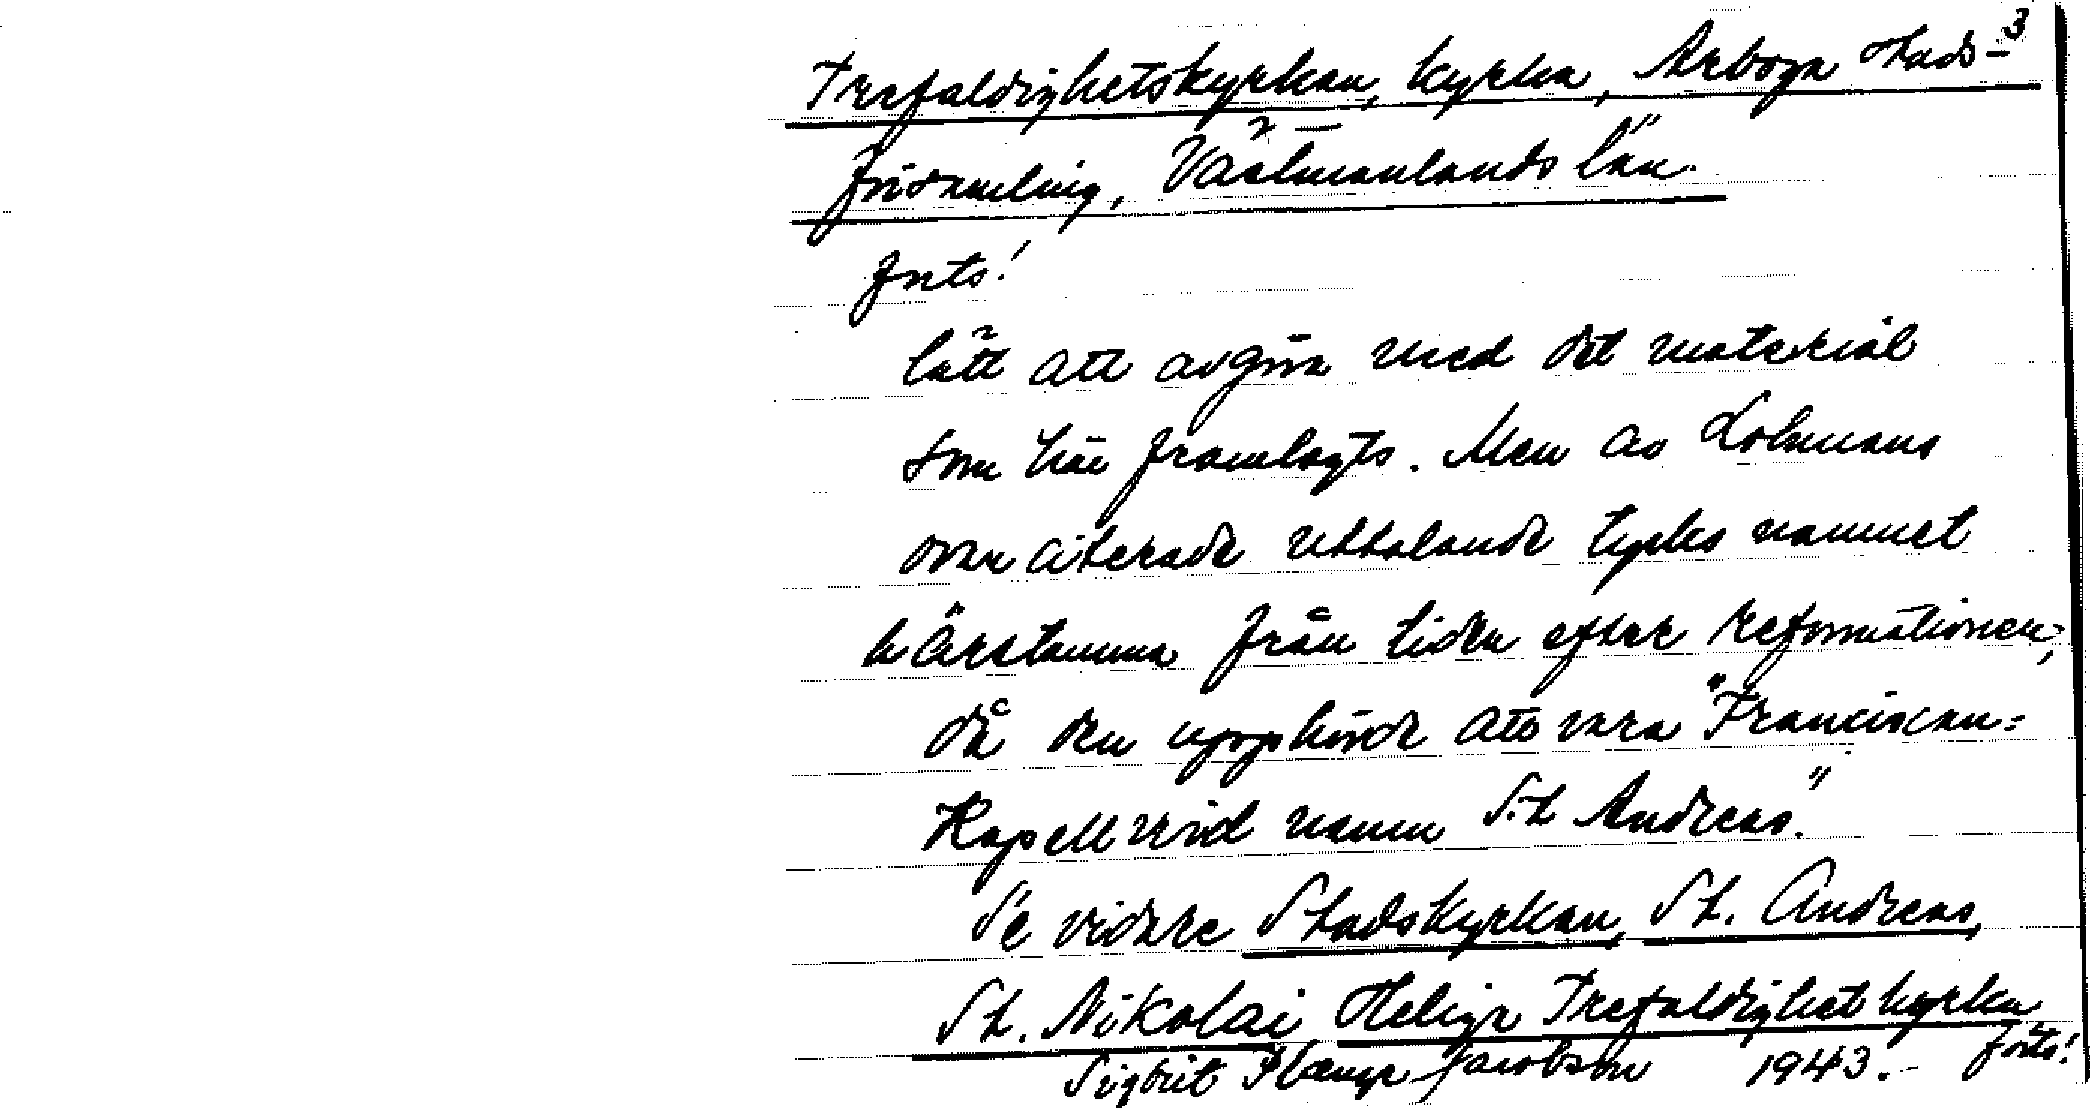 3
Trefaldighetskyrkan, kyrka, Arboga stads-
församling, Västmanlands län.
forts!
lätt att avgöra med det material
som här framlagts. Men av Lohmans
ovan citerade uttalande tycks namnet
härstamma från tiden efter reformationen,
då den upphörde att vara "Franciscan=
Kapell vid namn S:t Andreas."
Se vidare Stadskyrkan, St. Andreas,
St. Nikolai Heliga Trefaldighetkyrka
forts!
Sigbrit Plænge Jacobson 1943.